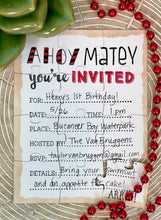 AHOY MATEY
you're INVITED
FOR: Henry's 1st Birthday!
DATE: 5/26 TIME: 1pm
PLACE: Buccaneer Bay Waterpark
HOSTED BY: The VanBruggens
RSVP: taylorvanbruggen@gmail.com
DETAILS: Bring your swimsuit
and an appetite for cake!
ARRR!